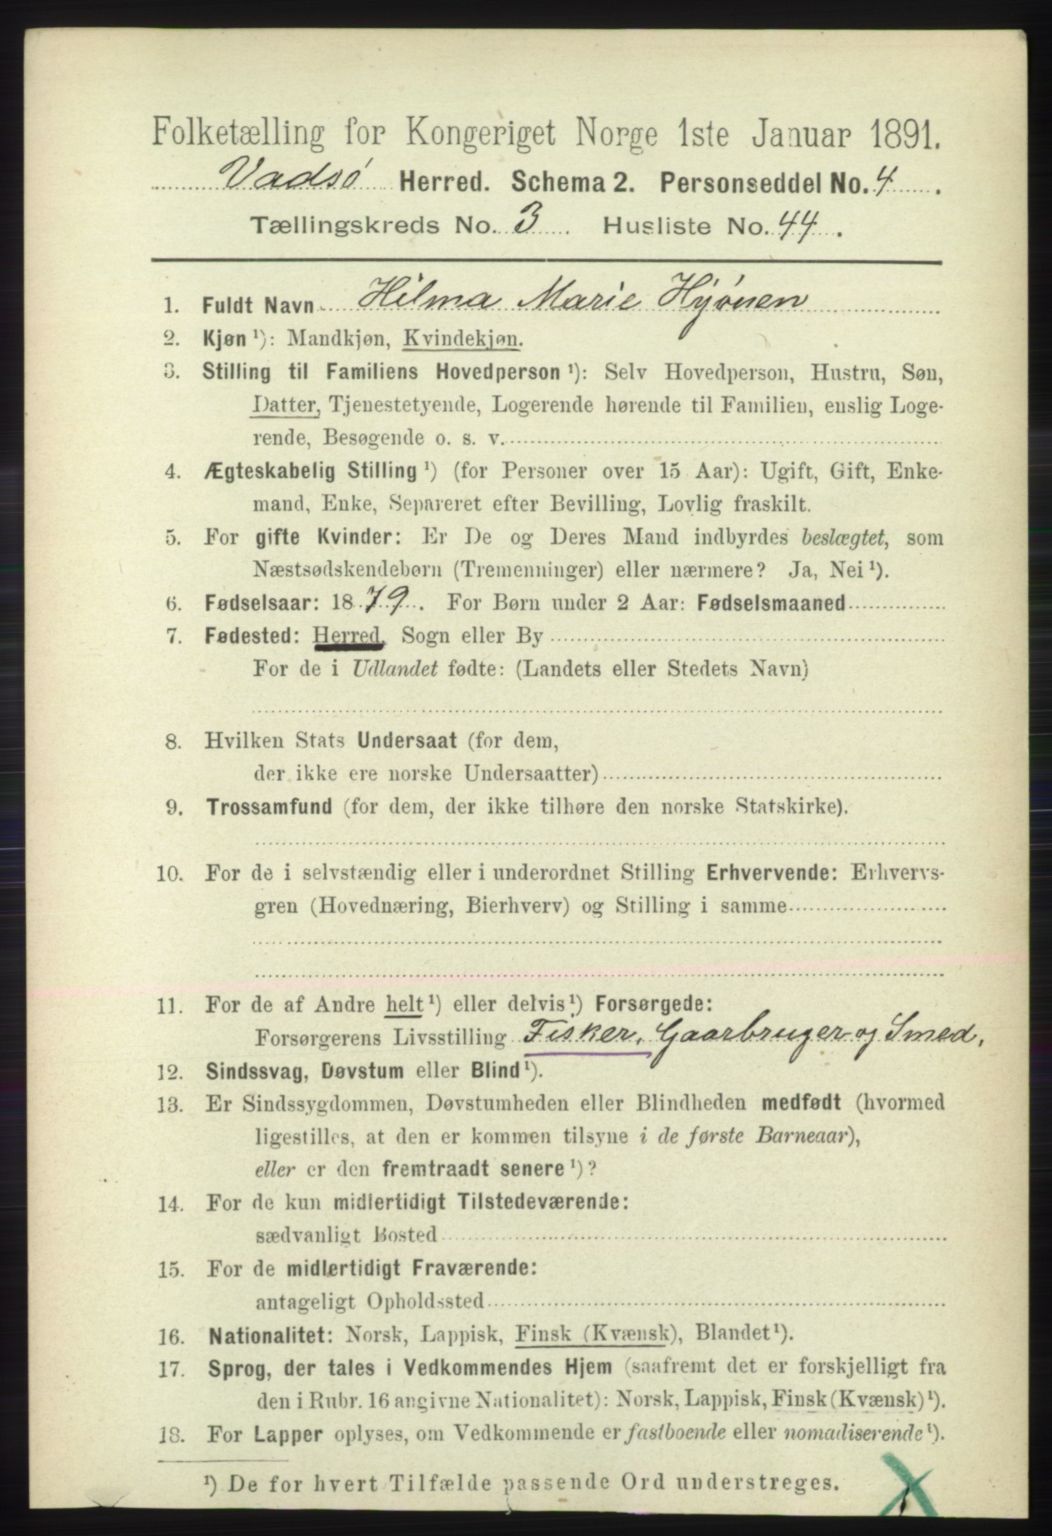 Folketælling for Kongeriget Norge 1ste Januar 1891.
Vadsø Herred. Schema 2. Personseddel No. 4.
Tællingskreds No. 3. Husliste No. 44.
1. Fuldt Navn Hilma Marie Hyönen
2. Kjøn ¹): Mandkjøn, Kvindekjøn.
3. Stilling til Familiens Hovedperson ¹): Selv Hovedperson, Hustru, Søn,
Datter, Tjenestetyende, Logerende hørende til Familien, enslig Loge-
rende, Besøgende o. s. v.
4. Ægteskabelig Stilling ¹) (for Personer over 15 Aar): Ugift, Gift, Enke-
mand, Enke, Separeret efter Bevilling, Lovlig fraskilt.
5. For gifte Kvinder: Er De og Deres Mand indbyrdes beslægtet, som
Næstsødskendebørn (Tremenninger) eller nærmere? Ja, Nei ¹).
6. Fødselsaar: 1879. For Børn under 2 Aar: Fødselsmaaned
7. Fødested: Herred, Sogn eller By
For de i Udlandet fødte: (Landets eller Stedets Navn)
8. Hvilken Stats Undersaat (for dem,
der ikke ere norske Undersaatter)
9. Trossamfund (for dem, der ikke tilhøre den norske Statskirke).
10. For de i selvstændig eller i underordnet Stilling Erhvervende: Erhvervs-
gren (Hovednæring, Bierhverv) og Stilling i samme
11. For de af Andre helt ¹) eller delvis ¹) Forsørgede:
Forsørgerens Livsstilling Fisker, Gaarbruger og Smed,
12. Sindssvag, Døvstum eller Blind ¹).
13. Er Sindssygdommen, Døvstumheden eller Blindheden medfødt (hvormed
ligestilles, at den er kommen tilsyne i de første Barneaar),
eller er den fremtraadt senere ¹)?
14. For de kun midlertidigt Tilstedeværende:
sædvanligt Bosted
15. For de midlertidigt Fraværende:
antageligt Opholdssted
16. Nationalitet: Norsk, Lappisk, Finsk (Kvænsk), Blandet ¹).
17. Sprog, der tales i Vedkommendes Hjem (saafremt det er forskjelligt fra
den i Rubr. 16 angivne Nationalitet): Norsk, Lappisk, Finsk (Kvænsk) ¹).
18. For Lapper oplyses, om Vedkommende er fastboende eller nomadiserende ¹).
¹) De for hvert Tilfælde passende Ord understreges.